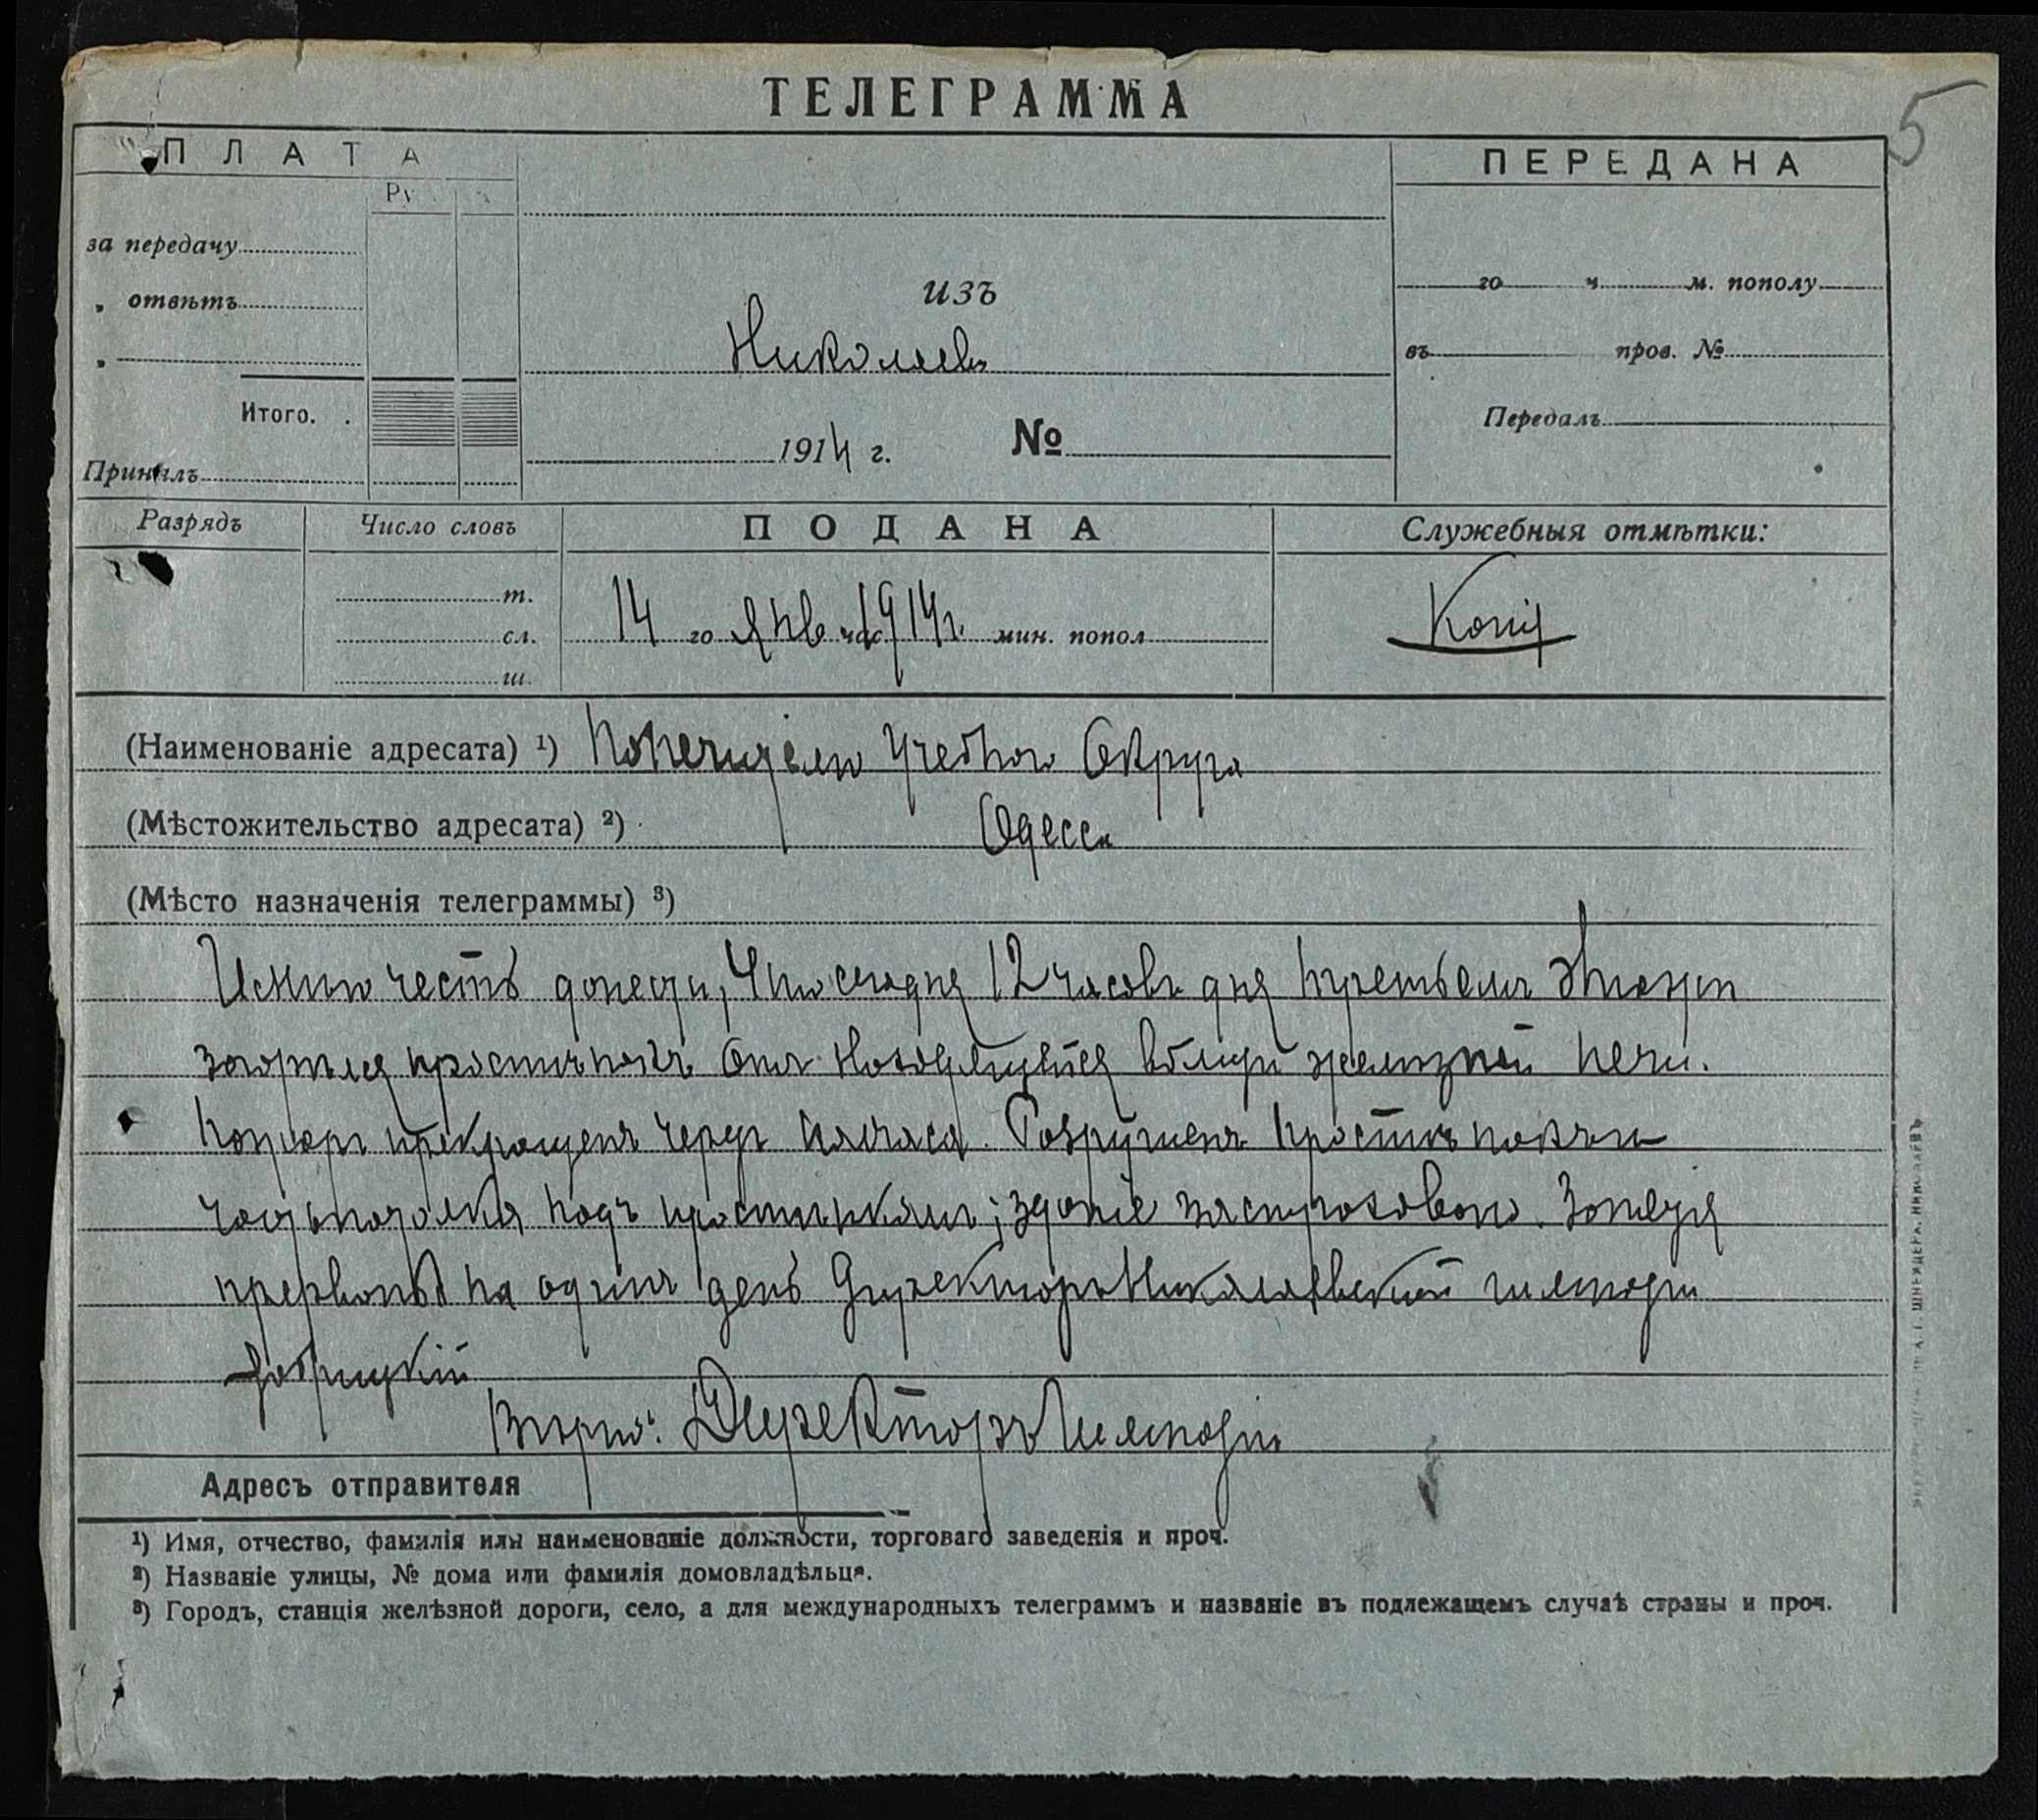 ТЕЛЕГРАММА
5
ПЛАТА
Ру
за передачу
„ отвѣтъ
„
Итого.
Принялъ
изъ
Николаевъ
1914 г. №
ПЕРЕДАНА
го ч. м. пополу
въ пров. №
Передалъ
Разрядъ
Число словъ
т.
сл.
ш.
ПОДАНА
14 го Янв час 1914 г. мин. попол
Служебныя отмѣтки:
Копія
(Наименованіе адресата) ¹) Попечителю Учебнаго Округа
(Мѣстожительство адресата) ²) Одесса
(Мѣсто назначенія телеграммы) ³)
Имѣю честь донести, что сегодня 12 часовъ дня третьемъ этажѣ
загорѣлся простѣнокъ отъ находящейся вблизи желѣзной печи.
Пожаръ прекращенъ черезъ полчаса. Разрушенъ простѣнокъ и
часть потолка надъ простѣнкомъ; зданіе застраховано. Занятія
прерваны на одинъ день Директоръ Николаевской гимназіи
Вѣрно: Директоръ Гимназіи
Адресъ отправителя
¹) Имя, отчество, фамилія или наименованіе должности, торговаго заведенія и проч.
²) Названіе улицы, № дома или фамилія домовладѣльца.
³) Городъ, станція желѣзной дороги, село, а для международныхъ телеграммъ и названіе въ подлежащемъ случаѣ страны и проч.
А. І. ШНЕЙДЕРА, НИКОЛАЕВЪ